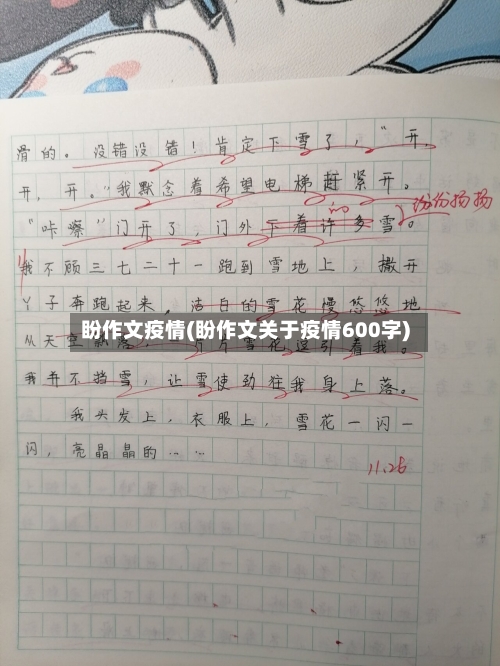 滑的。没错没错！肯定下雪了，“开
开，开。”我默念着希望电梯赶紧开。
“咔嚓”门开了，门外下着许多雪。
纷纷扬扬
我不顾三七二十一跑到雪地上，撒开
丫子奔跑起来，洁白的雪花慢悠悠地
盼作文疫情(盼作文关于疫情600字)
从天空飘落，片片雪花吸引着我。
我并不挡雪，让雪使劲往我身上落。
我头发上，衣服上，雪花一闪一
闪，亮晶晶的……
11.26